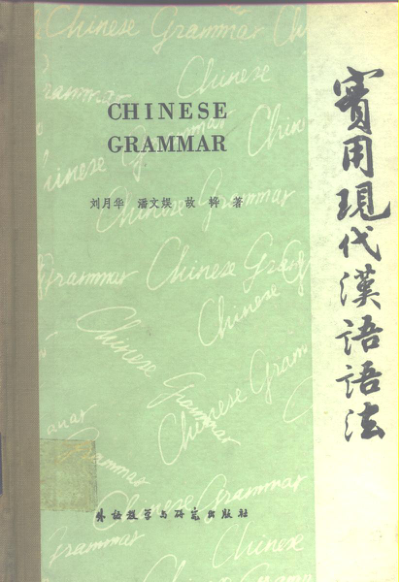 Chinese Grammar Ch
Chinese
Grammar
CHINESE
GRAMMAR
Chin
刘月华 潘文娱 故 韡 著
Grammar Chinese Gra
Chinese
Chinese Gram
Chinese
Grammar
Chinese
Grammar
Chinese
Grammar
外語教学与研究出版社
Grammar
實用現代漢語語法